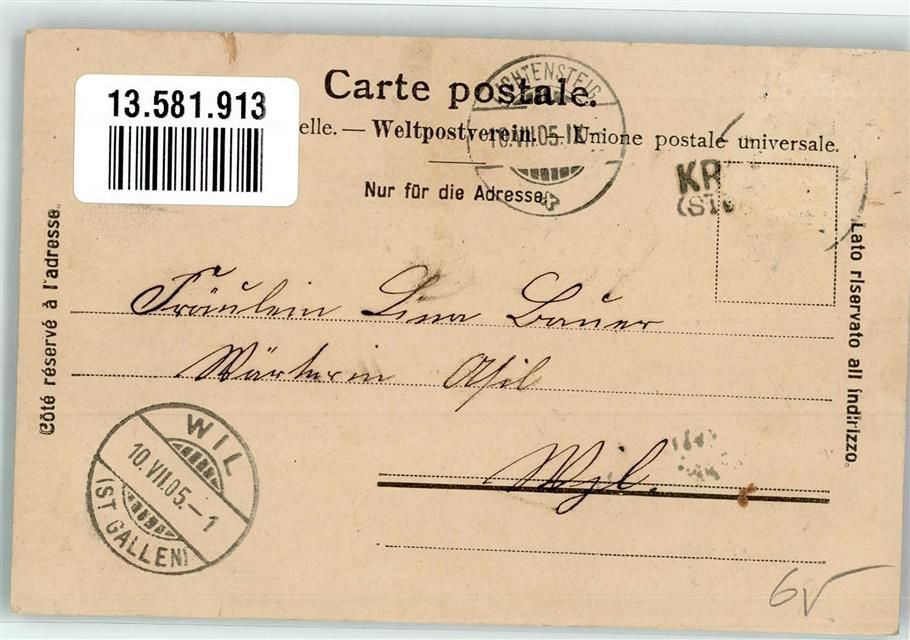 13.581.913
Carte postale.
elle. — Weltpostverein. — Unione postale universale.
Nur für die Adresse.
LICHTENSTEIG
10.VII.05.IX
KR
Côté réservé à l'adresse.
Lato riservato all indirizzo.
Fräulein Lina Bauer
Wärterin Asil
Wyl.
WIL
10.VII.05.–1
(ST GALLEN)